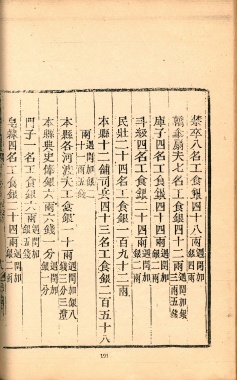 禁卒八名工食銀四十八兩遇閏加銀四兩
轎傘扇夫七名工食銀四十二兩遇閏加銀三兩五錢
庫子四名工食銀二十四兩遇閏加銀二兩
斗級四名工食銀二十四兩遇閏加銀二兩
民壯二十四名工食銀一百九十二兩
本縣十二舖司兵四十三名工食銀二百五十八
兩遇閏加銀二十一兩五錢
本縣各河渡夫工食銀一十兩遇閏加銀八錢三分三釐
本縣典史俸銀六兩六錢一分遇閏加銀
門子一名工食銀六兩遇閏加銀五錢
皂隸四名工食銀二十四兩遇閏加銀二兩
191